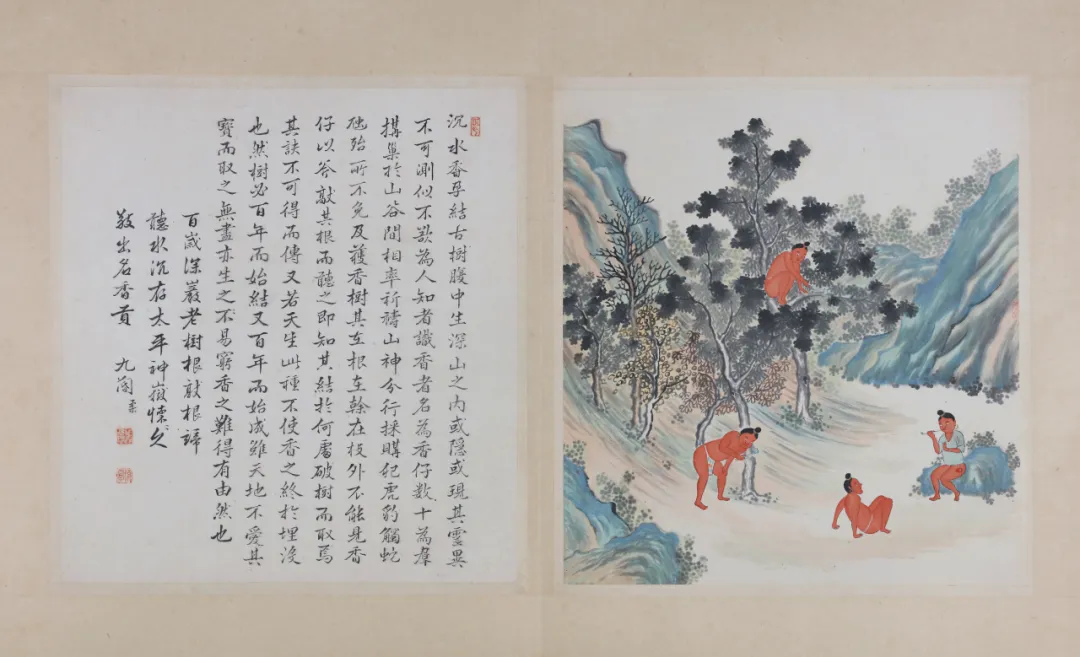 沉水香孕結古樹腹中生深山之內或隱或現其靈異
不可測似不欲為人知者識香者名為香仔數十為羣
搆巢於山谷間相率祈禱山神分行採購犯虎豹觸虵
虺殆所不免及獲香樹其在根在榦在枝外不能見香
仔以斧敲其根而聽之即知其結於何處破樹而取焉
其訣不可得而傳又若天生此種不使香之終於埋沒
也然樹必百年而始結又百年而始成雖天地不愛其
寶而取之無盡亦生之不易窮香之難得有由然也
百歲深巖老樹根敲根諦
聽水沉存太平神嶽懷久
敬出名香貢 九閽 柔